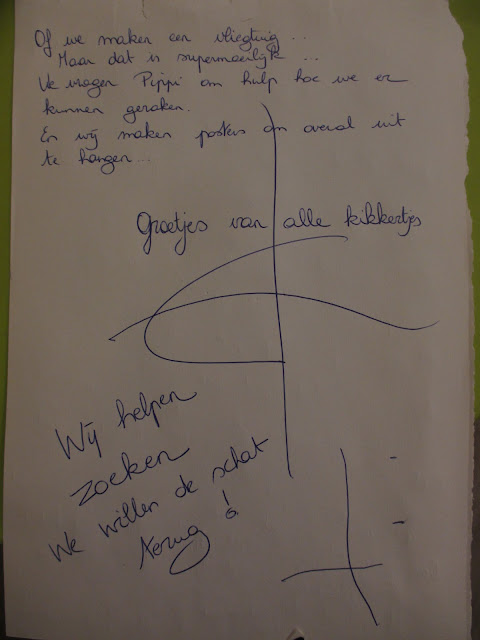 Of we maken een vliegtuig ..
Maar dat is supermoeilijk ...
We vragen Pippi om hulp hoe we er
kunnen geraken.
En wij maken posters om overal uit
te hangen...
Groetjes van alle kikkertjes
Wij helpen
zoeken
We willen de schat
terug !